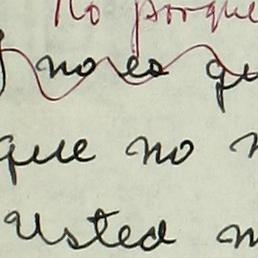 No porque
no es qu
que no n
Usted m